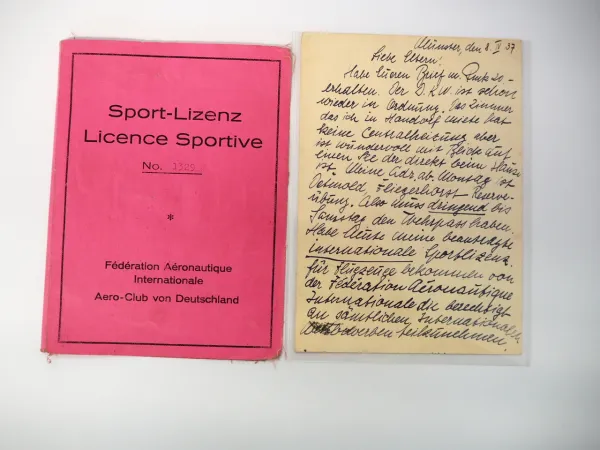 Sport-Lizenz
Licence Sportive
No. 1325
*
Fédération Aéronautique
Internationale
Aero-Club von Deutschland
Münster, den 8. IV 37
Liebe Eltern!
Habe Euren Brief m.
erhalten. Der D.K.W. ist schon
wieder in Ordnung. Das Zimmer
das ich in Handorf miete hat
keine Centralheizung aber
ist wundervoll mit Blick auf
einen See der direkt beim Hause
ist. Meine Adr. ab. Montag ist
Detmold Fliegerhorst Reserve-
übung. Also muss dringend bis
Samstag den Wehrpass haben.
Habe heute meine beantragte
internationale Sportlizenz
für Flugzeuge bekommen von
der Fédération Aéronautique
Internationale die berechtigt
an sämtlichen Internationalen
Wettbewerben teilzunehmen!